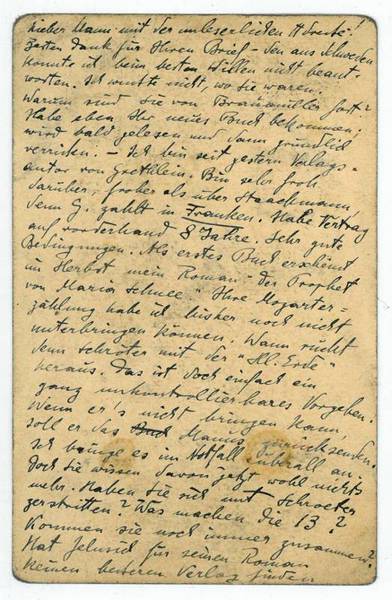 Lieber Mann mit der unleserlichen Adresse!
Besten Dank für Ihren Brief – den aus Schweden
konnte ich beim besten Willen nicht beant
worten. Ich wusste nicht, wo sie waren.
Warum sind Sie von Braumüller fort?
Habe eben Ihr neues Buch bekommen;
wird bald gelesen und dann gründlich
verrissen. – Ich bin seit gestern Verlags=
autor von Grethlein. Bin sehr froh
darüber, froher als über Staackmann,
denn G. zahlt in Franken. Habe Vertrag
auf vorderhand 8 Jahre. Sehr gute
Bedingungen. Als erstes Buch erscheint
im Herbst mein Roman "Der Prophet
von Maria Schnee". Ihre Mozarter=
zählung habe ich bisher noch nicht
unterbringen können. Wann rückt
denn Schroeter mit der "Hl. Erde"
heraus. Das ist doch einfach ein
ganz unkontrollierbares Vorgehen.
Wenn er's nicht bringen kann,
soll er das Manus. zurücksenden.
Ich bringe es im Notfall überall an.
Doch Sie wissen davon jetzt wohl nichts
mehr. Haben Sie sich mit Schroeter
zerstritten? Was machen die 13?
Kommen sie noch immer zusammen?
Hat Jelusich für seinen Roman
keinen besseren Verlag finden